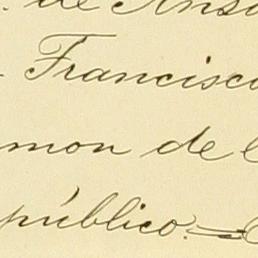 de Ans
Francisco
mon de
público.=